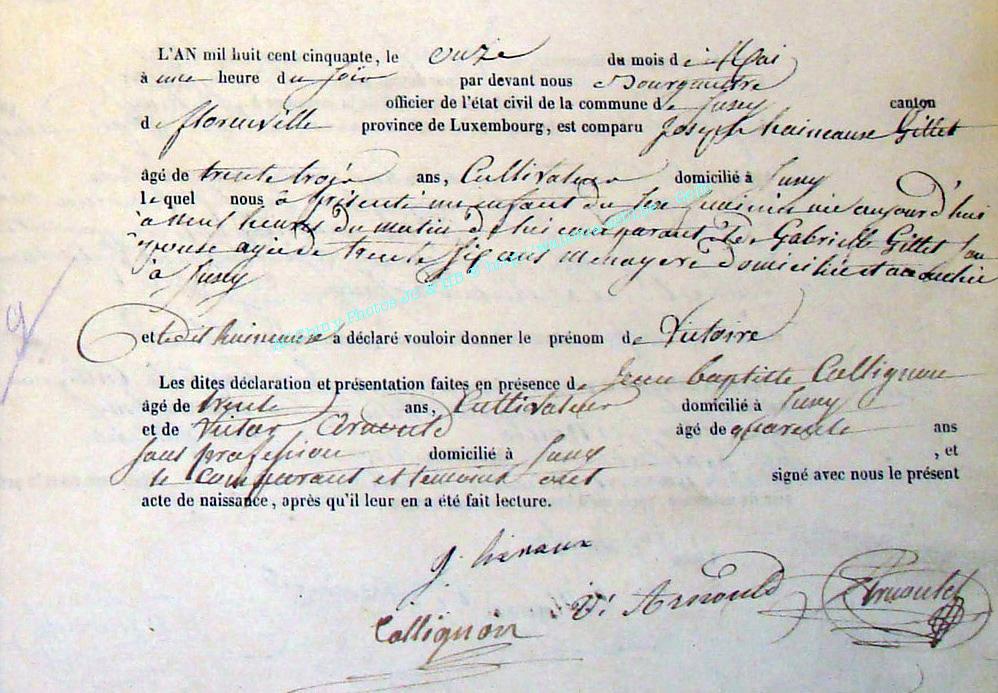 L'AN mil huit cent cinquante, le onze du mois de Mai
à une heure du soir par devant nous Bourgmestre
officier de l'état civil de la commune de Suny canton
de florenville province de Luxembourg, est comparu Joseph haineaux Gillet
âgé de trente trois ans, Cultivateur domicilié à Suny
le quel nous à présenté un enfant du sexe né aujourd'hui
à neuf heures du matin de lui comparant et de Gabrielle Gillet son
épouse agée de trente six ans menagere domiciliée et accouchée
à Suny
et le dit haineaux a déclaré vouloir donner le prénom de Victoire
Les dites déclaration et présentation faites en présence de Jean baptiste Collignon
âgé de trente ans, Cultivateur domicilié à Suny
et de Victor Arnould âgé de quarente ans
sans profession domicilié à Suny , et
le comparant et temoins ont signé avec nous le présent
acte de naissance, après qu'il leur en a été fait lecture.
J. henaux
V. Arnould
Collignon